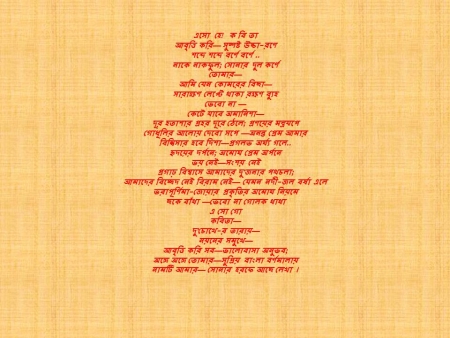 এসো হে! ক বি তা
আবৃতি করি— সুস্পষ্ট উচ্চা-রণে
শব্দে শব্দে বর্ণে বর্ণে ..
নাকে নাকফুল; সোনার দুল কর্ণে
তোমার—
আমি যেন কোমরের বিছা—
সারাক্ষণ লেপ্টে থাকা রক্ষণ ব্যুহে
ভেবো না —
কেটে যাবে অমানিশা—
দূর হতাশার প্রহর দূরে ঠেলে; প্রণয়ের মন্ত্রযপে
গোধুলির আলোয় দেবো সপে —অনন্ত প্রেম আমার
বিম্বিসার হবে দিশা—প্রগলভ অর্ঘ্য গলে..
হৃদয়ের দর্পনে; অমোঘ প্রেম অর্পনে
ভয় নেই—সংশয় নেই
প্রগাঢ় বিশ্বাসে আমাদের দু'জনার পথচলা;
আমাদের বিচ্ছেদ নেই বিরাম নেই— যেমন নদী-জল বর্ষা এলে
ভরাপূর্ণিমা-জোয়ার প্রকৃতির অমোঘ নিয়মে
ছকে বাঁধা —ভেবো না গোলক ধাধা
এ সো গো
কবিতা—
দু'চোখে-র তারায়—
নয়নের সমুখে—
আবৃতি করি সব—ভালোবাসা অনুভব;
অঙ্গে অঙ্গে তোমার—সুপ্রিয় বাংলা বর্ণমালায়
নামটি আমার— সোনার হরফে আছে লেখা ।